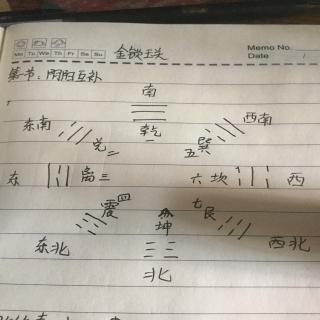 Mo Tu We Th Fr Sa Su
金锁玉关
Memo No.
Date /
第一节:阴阳互补
南
东南 兑二 乾一 五巽 西南
东 离三 六坎 西
震四 坤 七艮
东北 北 西北